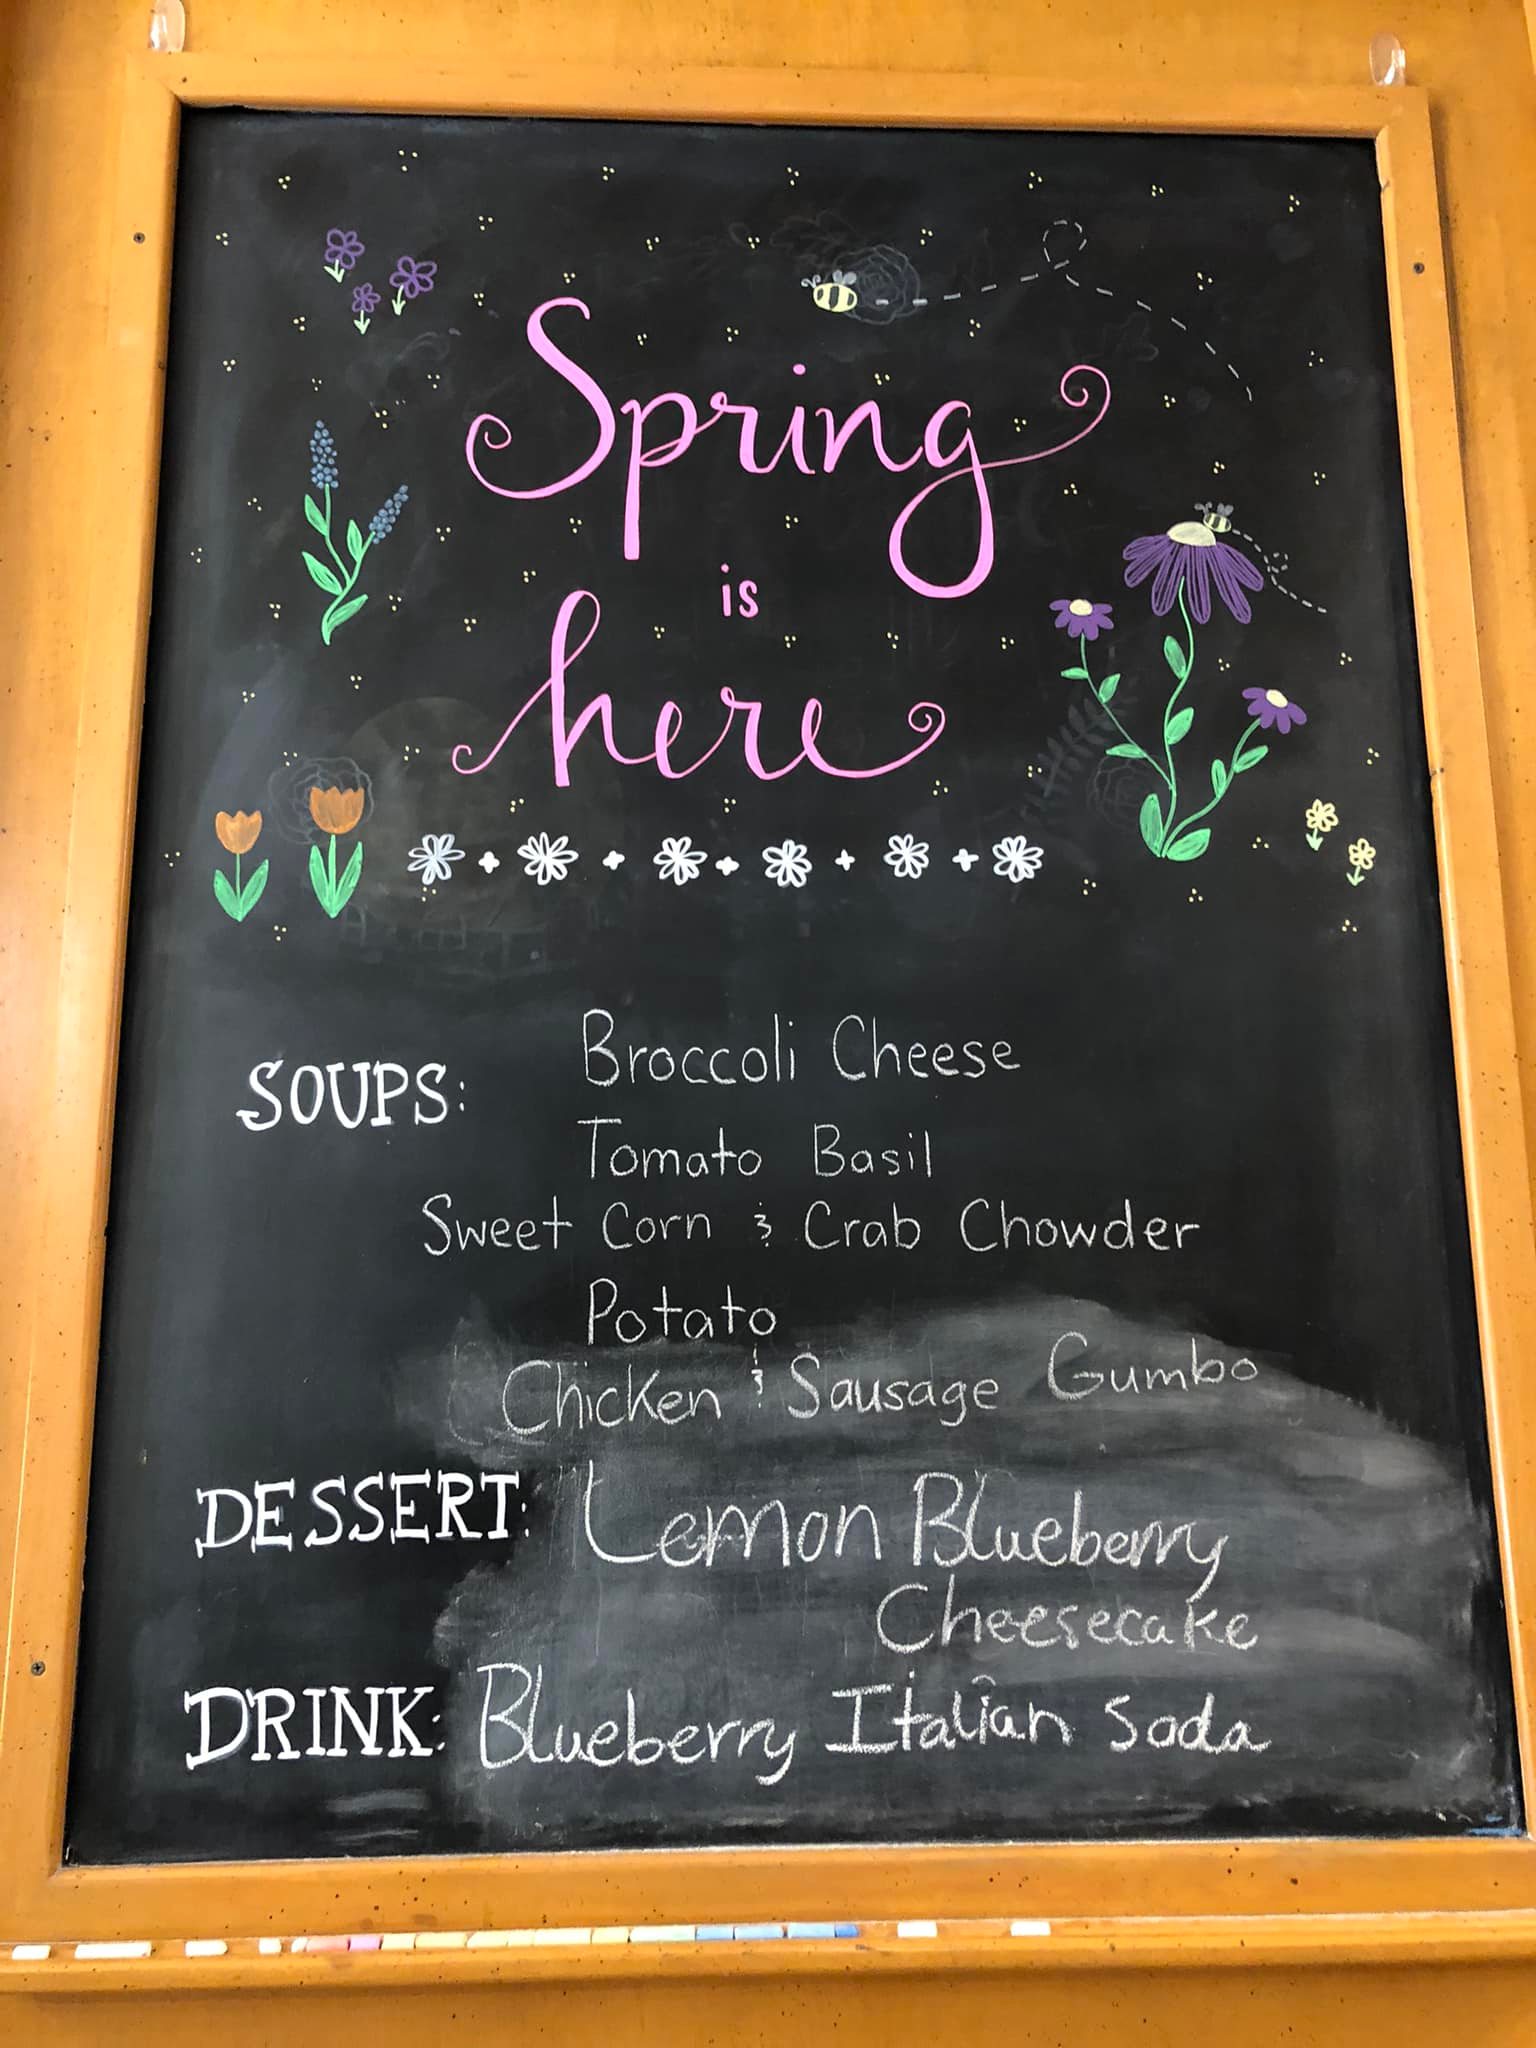 Spring
is
here
SOUPS:
Broccoli Cheese
Tomato Basil
Sweet Corn & Crab Chowder
Potato
Chicken & Sausage Gumbo
DESSERT: Lemon Blueberry
Cheesecake
DRINK: Blueberry Italian Soda